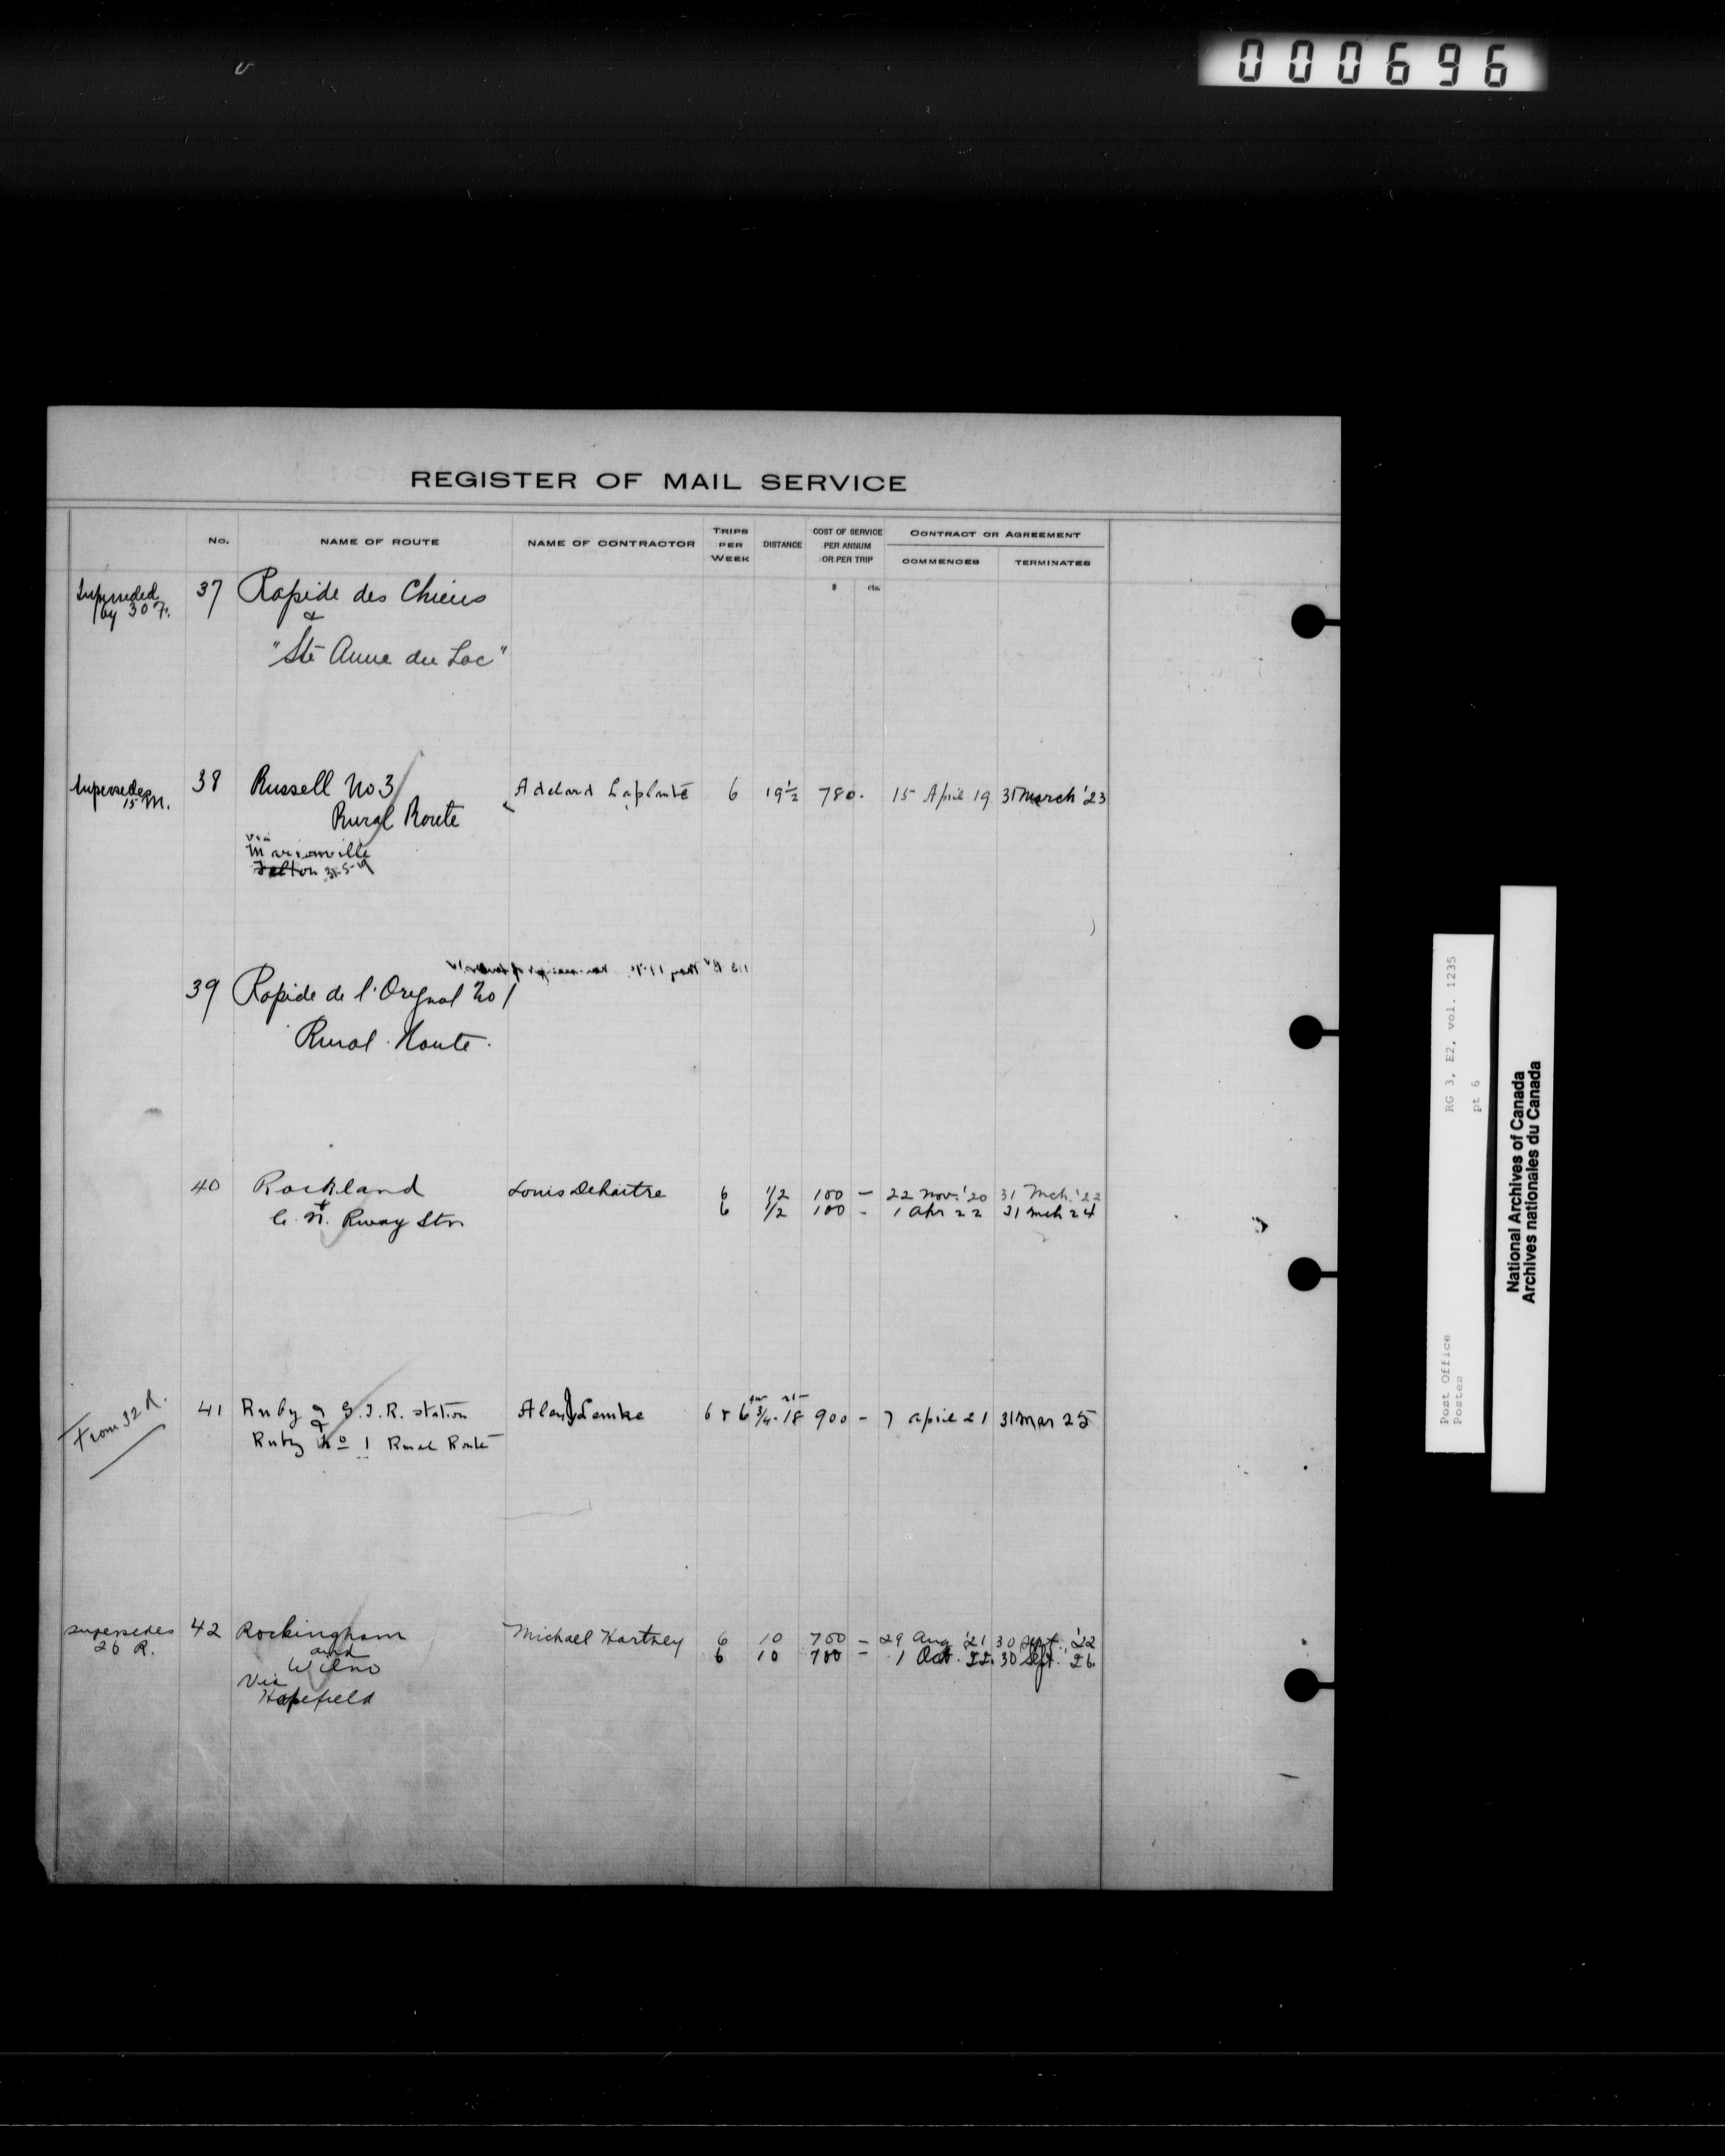 000696
REGISTER OF MAIL SERVICE
No. NAME OF ROUTE NAME OF CONTRACTOR TRIPS PER WEEK DISTANCE COST OF SERVICE PER ANNUM OR PER TRIP CONTRACT OR AGREEMENT
COMMENCES TERMINATES
$ cts.
Superseded 37 Rapide des Chiens
by 30 F. &
"Ste Anne du Lac"
Supersedes 38 Russell No 3 Adelard Laplante 6 19½ 780. 15 April 19 31 March '23
15 M. Rural Route
via
Marionville
Felton 31-5-19
39 Rapide de l'Orignal No 1
Rural Route.
40 Rockland Louis Dehaitre 6 1/2 100 — 22 Nov. '20 31 Mch. '22
& 6 1/2 100 - 1 Apr 22 31 Mch 24
C. N. Rway Stn
From 32 R. 41 Ruby & G.T.R. station Alex Lemke 6 & 6 3/4 - 18 900 - 7 april 21 31 Mar 25
&
Ruby No 1 Rural Route
supersedes 42 Rockingham Michael Hartney 6 10 700 — 29 Aug '21 30 Sept. '22
26 R. and 6 10 700 — 1 Oct. 22. 30 Sept. '26
Wilno
Via
Hopefield
Post Office RG 3, E2, vol. 1235
Postes pt 6
National Archives of Canada
Archives nationales du Canada